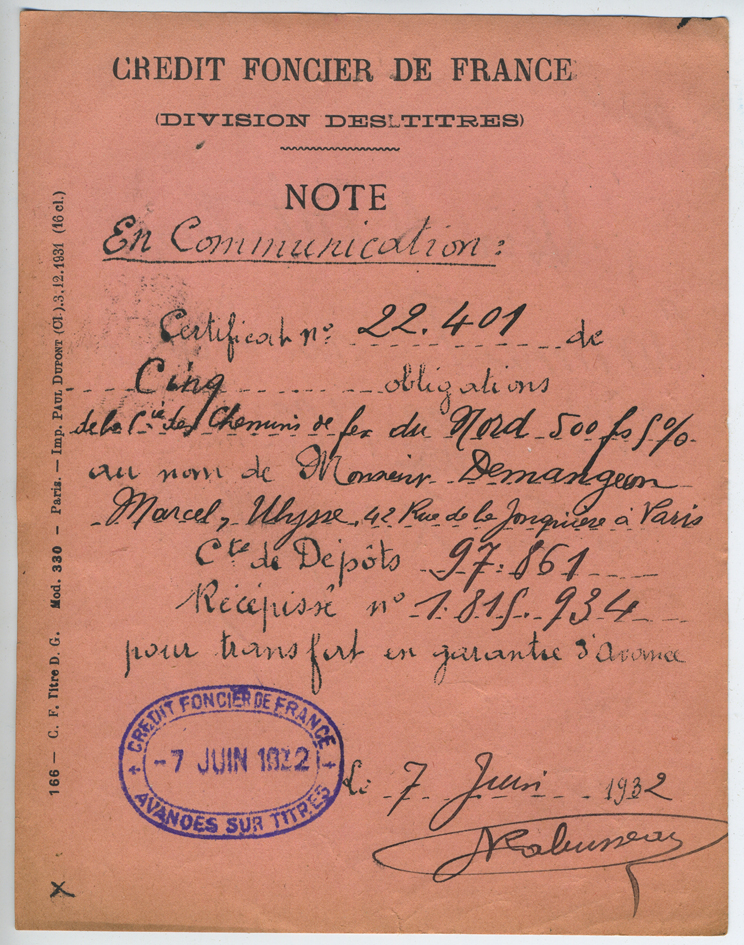 CREDIT FONCIER DE FRANCE
(DIVISION DES TITRES)
NOTE
En Communication :
Certificat n° 22.401 de
Cinq obligations
de la Cie des Chemins de fer du Nord 500 fs 5%
au nom de Monsieur Demangeon
Marcel, Ulysse, 42 Rue de la Jonquière à Paris
Cte de Dépôts 97.861
Récépissé n° 1.815.934
pour transfert en garantie d'avance
CREDIT FONCIER DE FRANCE
-7 JUIN 1932
AVANCES SUR TITRES
Le 7 Juin 1932
166 — C. F. Titre D. G. Mod. 330 — Paris. — Imp. PAUL DUPONT (Cl.).3.12.1931 (16 cl.)